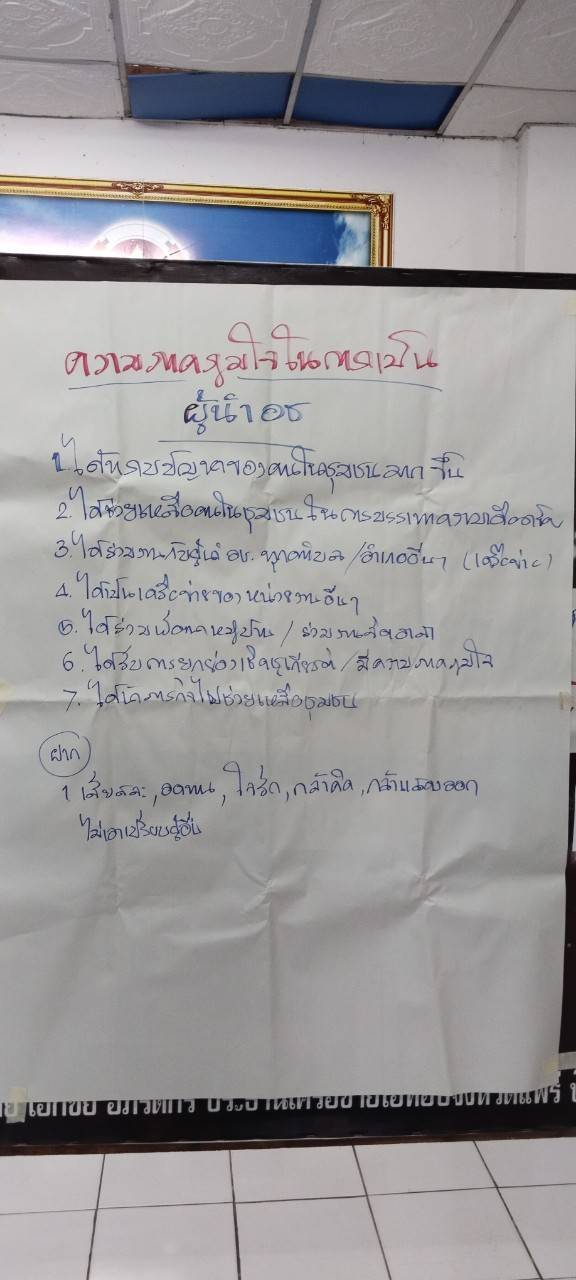 ความภาคภูมิใจในการเป็น
ผู้นำ อช
1. ได้ทราบปัญหาของคนในชุมชนมากขึ้น
2. ได้ช่วยเหลือคนในชุมชนในการบรรเทาความเดือดร้อน
3. ได้ร่วมงานกับผู้นำ อช. ทุกตำบล/อำเภออื่นๆ (เครือข่าย)
4. ได้เป็นเครือข่ายของหน่วยงานอื่นๆ
5. ได้ร่วมพัฒนาหมู่บ้าน / ร่วมงานจิตอาสา
6. ได้รับการยกย่องเชิดชูเกียรติ / มีความภาคภูมิใจ
7. ได้นำภารกิจไปช่วยเหลือชุมชน
ฝาก
1 เสียสละ, อดทน, ใจรัก, กล้าคิด, กล้าแสดงออก
ไม่เอาเปรียบผู้อื่น
เอกชัย อภิรติกร ประธานเครือข่ายโอทอปจังหวัดแพร่